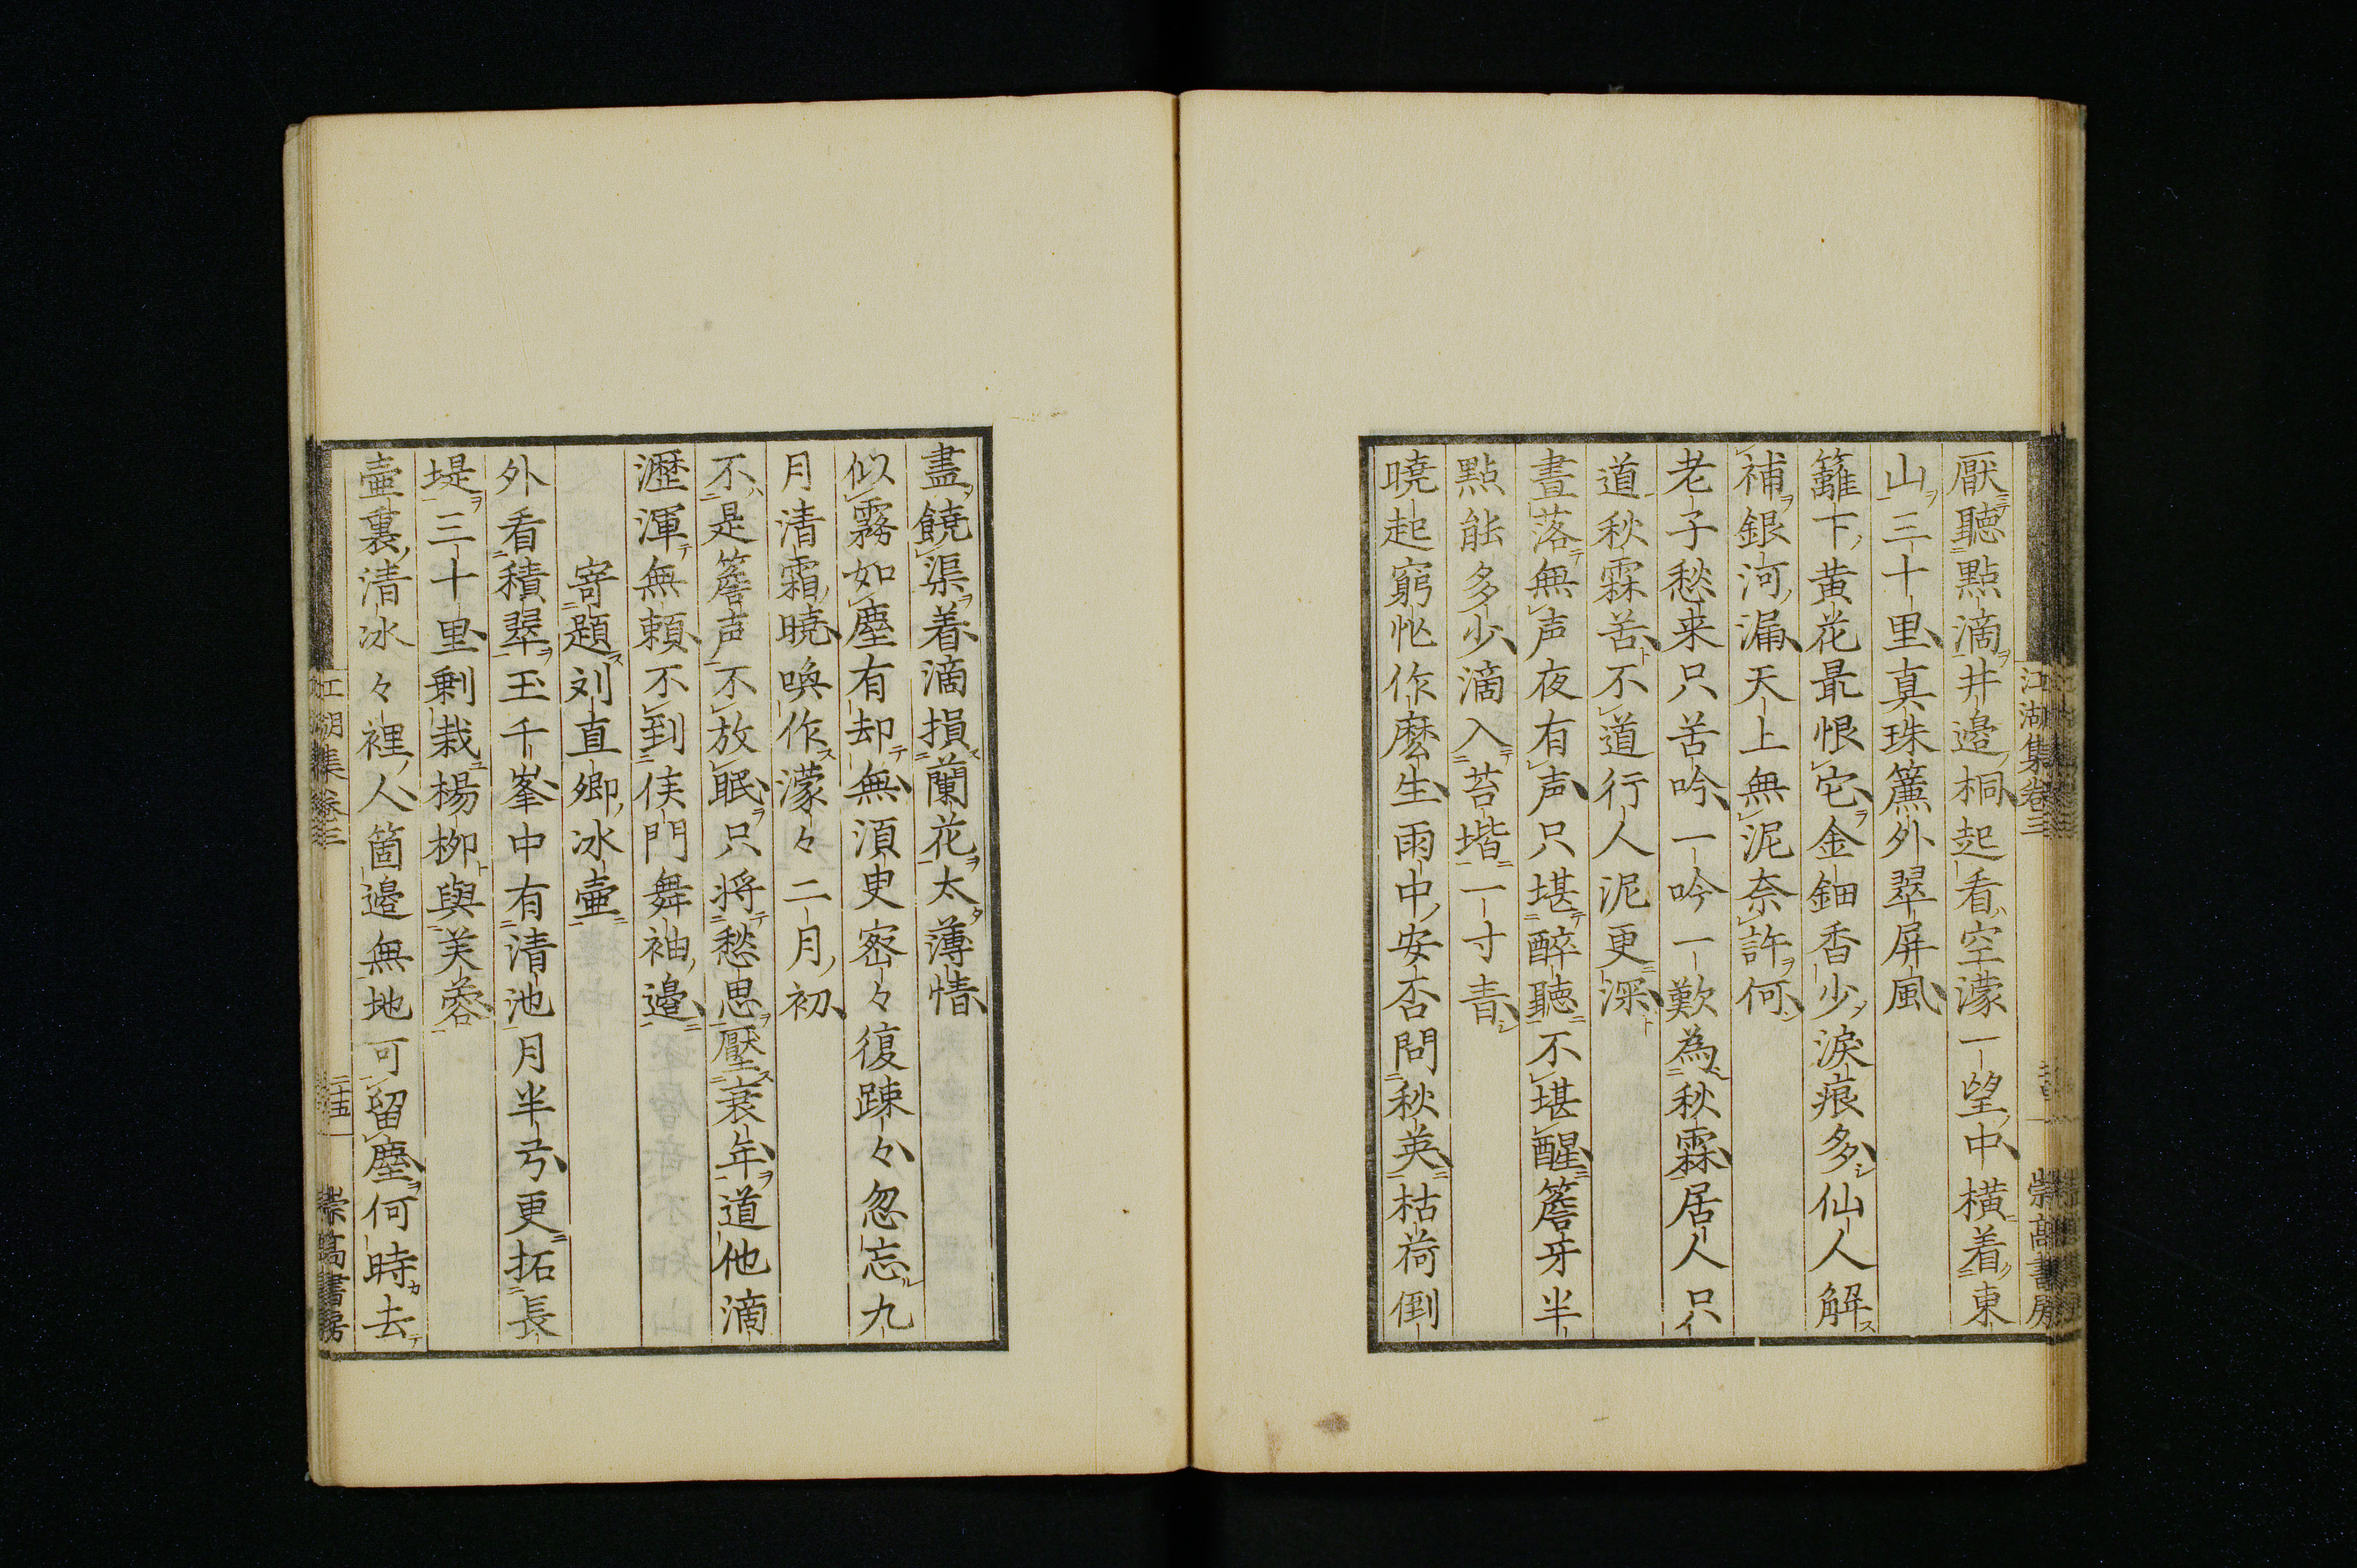 厭聽點滴井邉桐起看空濛一望中横着東
山三十里真珠簾外翠屏風
籬下黄花最恨它金鈿香少淚痕多仙人解
補銀河漏天上無泥奈許何
老子愁来只苦吟一吟一歎為秋霖居人只
道秋霖苦不道行人泥更深
晝落無声夜有声只堪醉聽不堪醒簷牙半
點能多少滴入苔堦一寸青
曉起窮忙作麽生雨中安否問秋英枯荷倒
江湖集卷三
崇高書房
盡饒渠着滴損蘭花太薄情
似霧如塵有却無湏臾密々復踈々忽忘九
月清霜曉喚作濛々二月初
不是簷声不放眠只将愁思壓衰年道他滴
瀝渾無頼不到侯門舞袖邉
寄題刘直卿冰壷
外看積翠玉千峯中有清池月半弓更拓長
堤三十里剰栽楊栁與芙蓉
壷裏清冰々裡人箇邉無地可留塵何時去
江湖集卷三
二十五
崇高書房